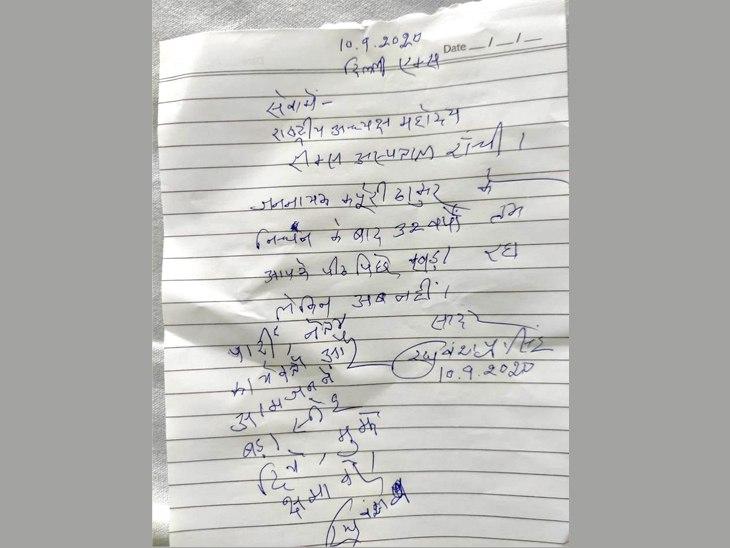 10.9.2020
Date __/__/__
दिल्ली एम्स
सेवामें-
राष्ट्रीय अध्यक्ष महोदय
रीम्स अस्पताल राँची।
जननायक कर्पूरी ठाकुर के
निधन के बाद 32 वर्षों तक
आपके पीठ पिछे खड़ा रहा
लेकिन अब नहीं।
पार्टी, नेता
कार्यकर्ता और
आमजन ने
बड़ा स्नेह
दिये, मुझे
क्षमा करें।
सादर
रघुवंश प्रसाद सिंह
10.9.2020